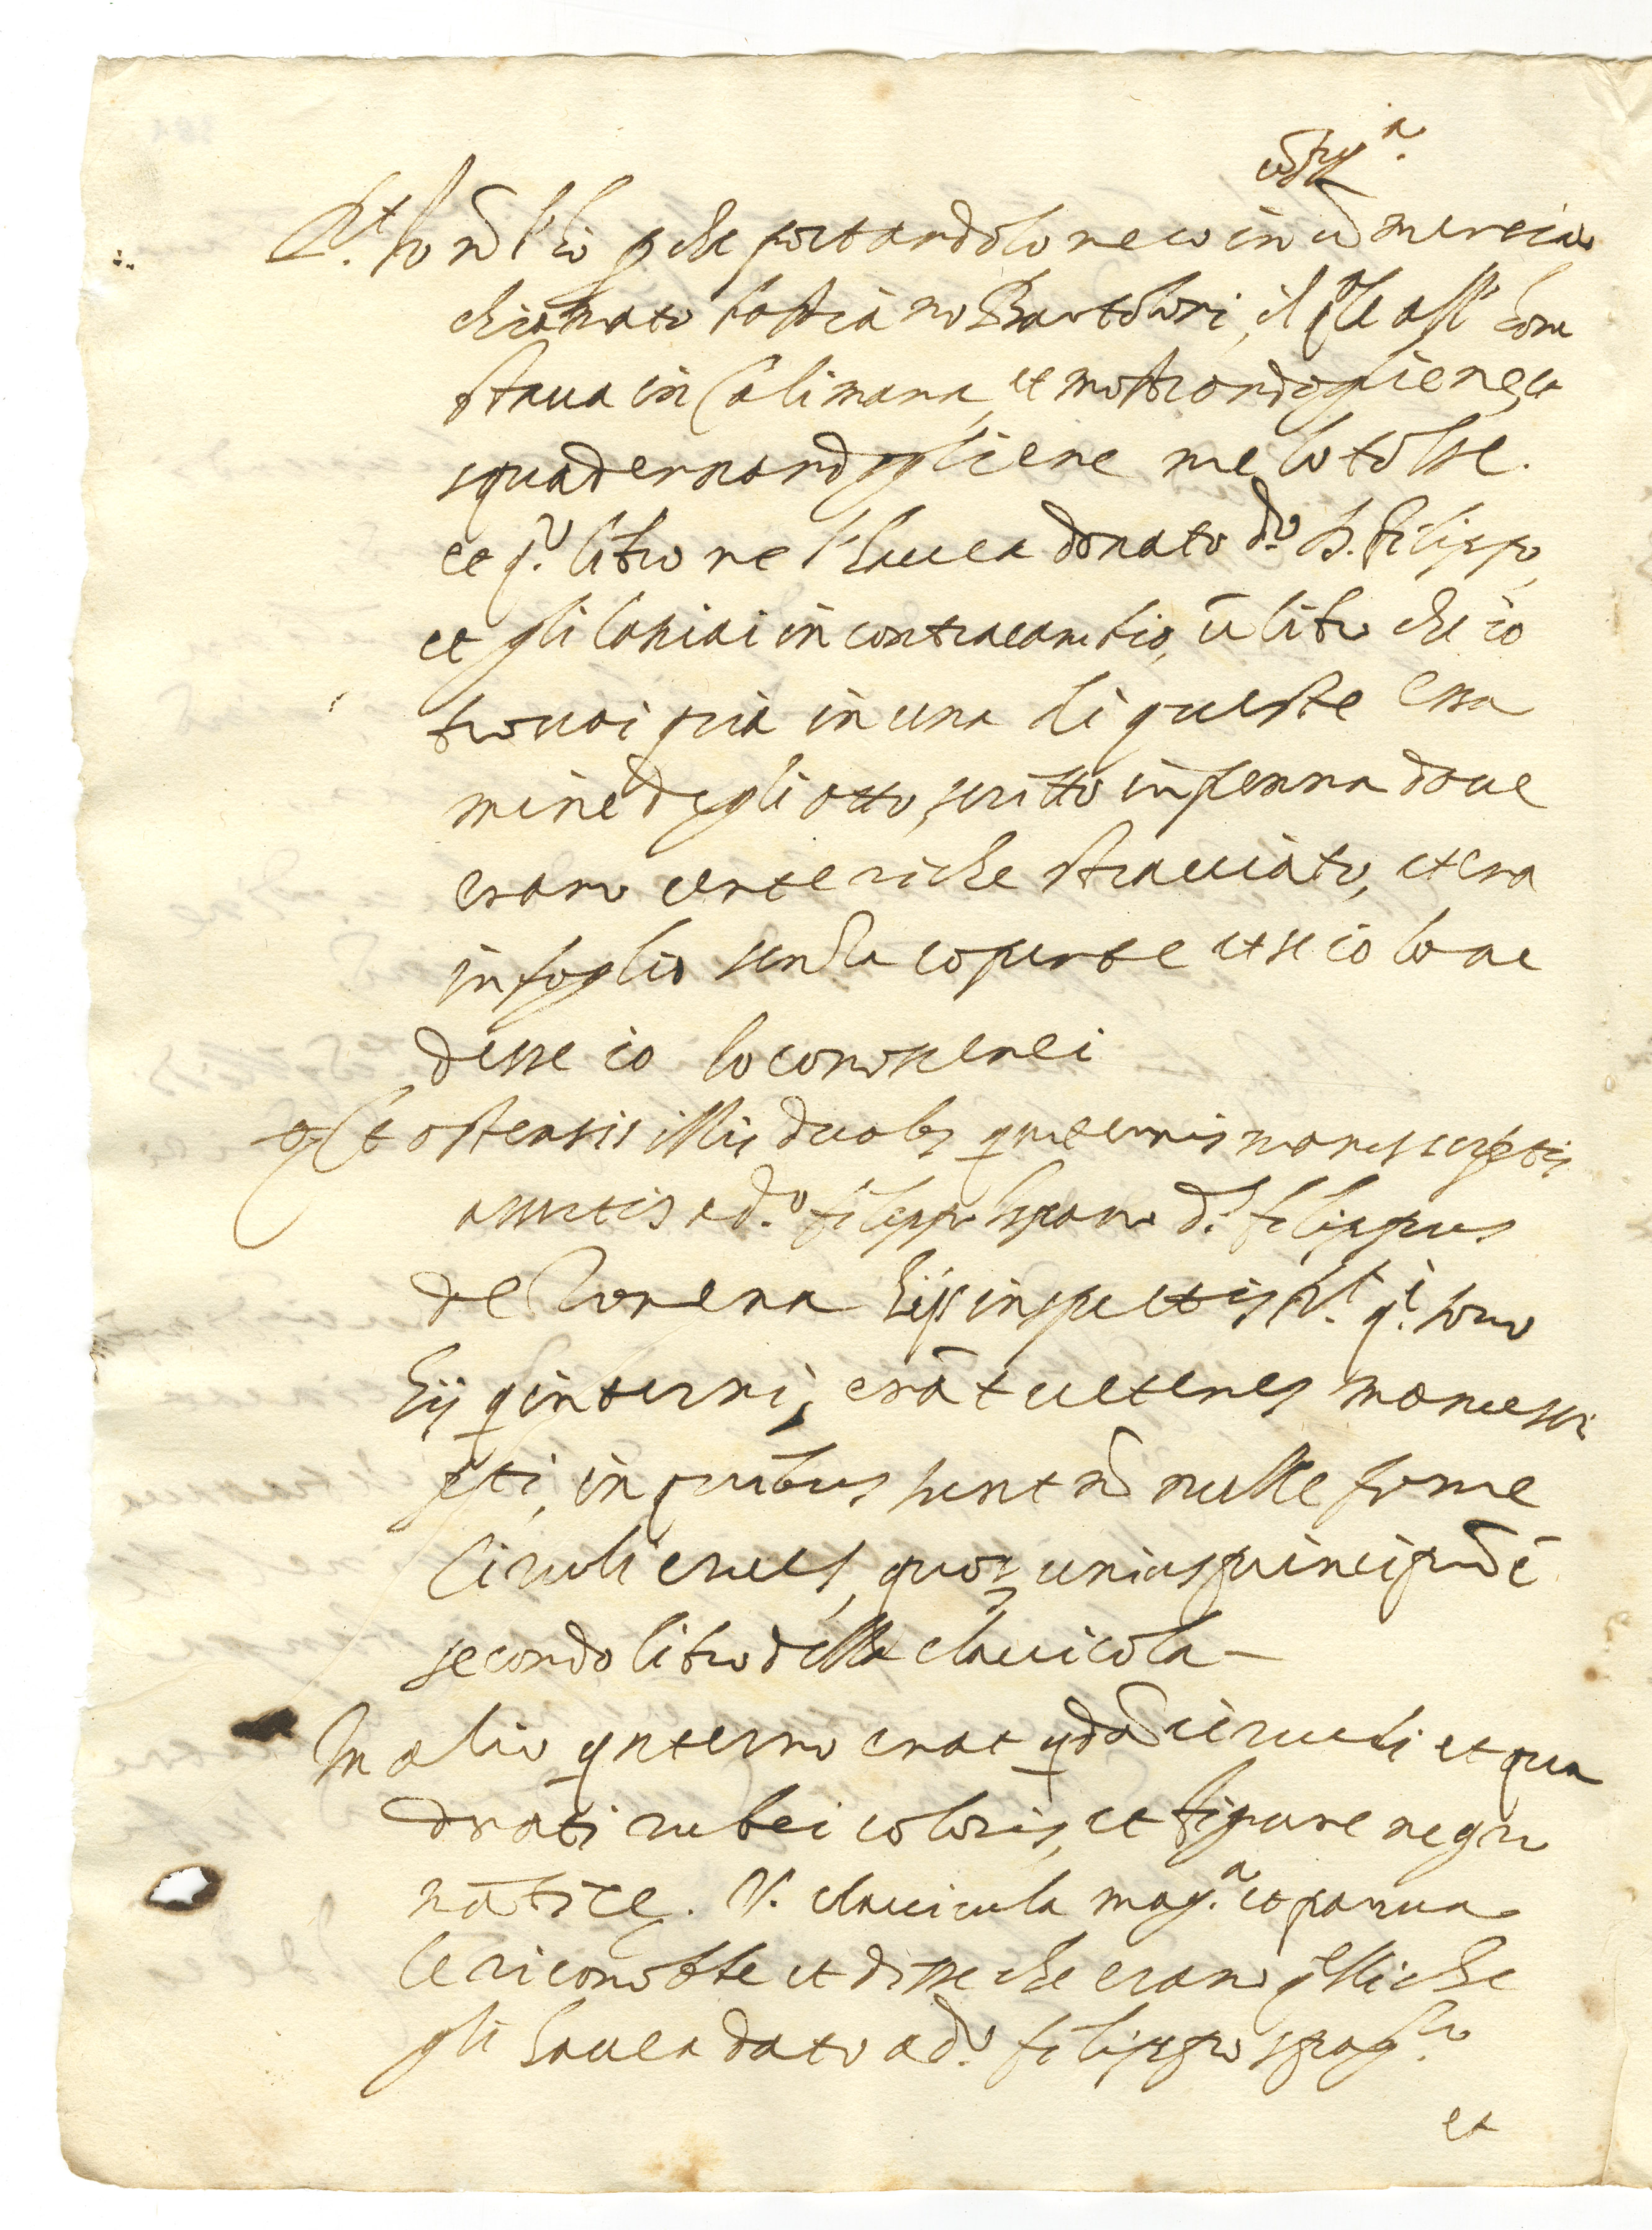 R.t Io nõ l'hò perche portandolo meco in cõ merciaro
chiamato bastiano Bartoloni, il qle all' hora
staua in Calimara, et mostrandogliene, et
squadernandogliene me lo tolse.
et q.o libro me l'haueua donato d.o S. Filippo,
et gli lasciai in contracambio, ũ libro che io
trouai già in una di queste Essa
mine degli otto, scritto in penna doue
erano certe righe stracciato, et era
in foglio senza coperte et se io lo ue
desse io lo conoscerei
Et ostensis illis duobs quinternis manuscriptis
assertis a d.o filippo hispano d.s filippus
de Corena hijs inspectis R.t q.i sono
hij qinterni, erãt ueteres manuscri
pti, in quibus sunt nõ nulle forme
Circuli cruces, quor unius principiũ è
secondo libro della clauicola –
In alio qnterno erat qdã circuli et qua
drati rubei coloris, et figure negro
mãtice. V. clauicula mag.a et parua
le riconobbe et disse che erano qlli che
gli haueua dato a d.o filippo spag.lo
et